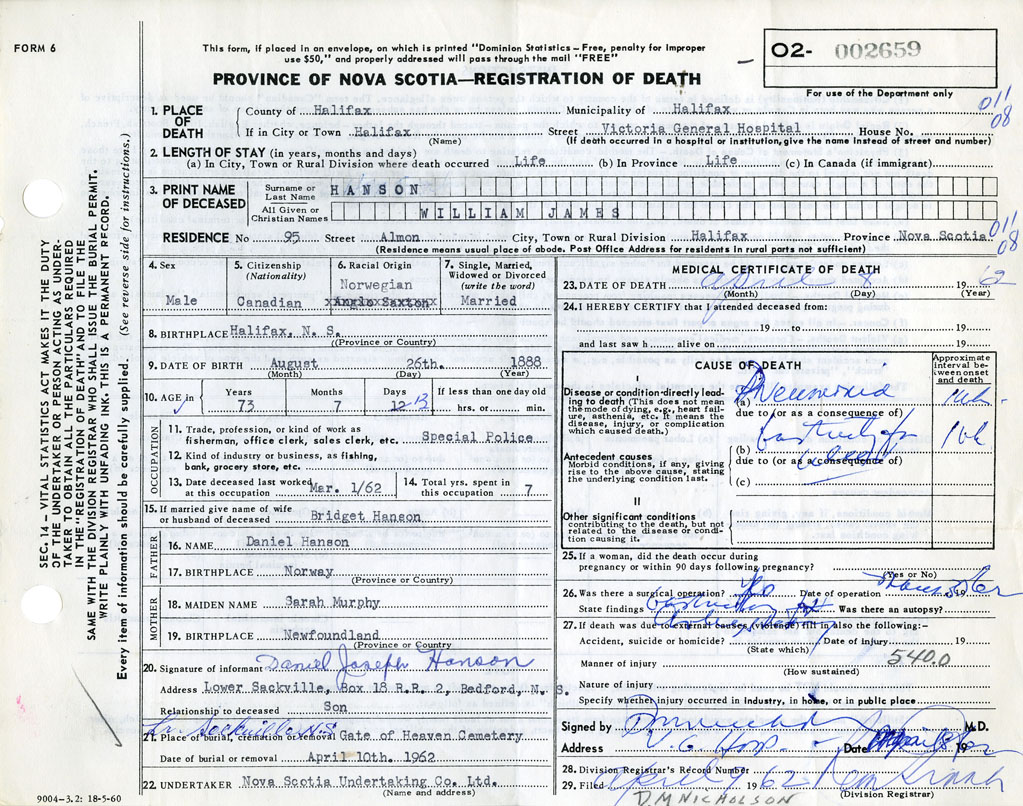 FORM 6
This form, if placed in an envelope, on which is printed "Dominion Statistics – Free, penalty for improper
use $50," and properly addressed will pass through the mail "FREE"
PROVINCE OF NOVA SCOTIA—REGISTRATION OF DEATH
02- 002659
For use of the Department only
011
08
1. PLACE OF DEATH
County of Halifax Municipality of Halifax
If in City or Town Halifax Street Victoria General Hospital House No.
(Name) (If death occurred in a hospital or institution, give the name instead of street and number)
2. LENGTH OF STAY (in years, months and days)
(a) In City, Town or Rural Division where death occurred Life (b) In Province Life (c) In Canada (if immigrant)
3. PRINT NAME OF DECEASED
Surname or Last Name HANSON
All Given or Christian Names WILLIAM JAMES
RESIDENCE No 95 Street Almon City, Town or Rural Division Halifax Province Nova Scotia
011
08
(Residence means usual place of abode. Post Office Address for residents in rural parts not sufficient)
4. Sex
Male
5. Citizenship (Nationality)
Canadian
6. Racial Origin
Norwegian
Anglo Saxton
7. Single, Married, Widowed or Divorced (write the word)
Married
8. BIRTHPLACE Halifax, N. S.
(Province or Country)
9. DATE OF BIRTH August 26th. 1888
(Month) (Day) (Year)
10. AGE in
Years 73
Months 7
Days 12 13
If less than one day old
hrs. or min.
OCCUPATION
11. Trade, profession, or kind of work as
fisherman, office clerk, sales clerk, etc. Special Police
12. Kind of industry or business, as fishing,
bank, grocery store, etc.
13. Date deceased last worked
at this occupation Mar. 1/62
14. Total yrs. spent in
this occupation 7
15. If married give name of wife
or husband of deceased Bridget Hanson
FATHER
16. NAME Daniel Hanson
17. BIRTHPLACE Norway
(Province or Country)
MOTHER
18. MAIDEN NAME Sarah Murphy
19. BIRTHPLACE Newfoundland
(Province or Country
20. Signature of informant Daniel Joseph Hanson
Address Lower Sackville, Box 18 R.R. 2, Bedford, N. S.
Relationship to deceased Son
Lr. Sackville N.S
21. Place of burial, cremation or removal Gate of Heaven Cemetery
Date of burial or removal April 10th. 1962
22. UNDERTAKER Nova Scotia Undertaking Co. Ltd.
(Name and address)
9004-3.2: 18-5-60
MEDICAL CERTIFICATE OF DEATH
23. DATE OF DEATH April 8 1962
(Month) (Day) (Year)
24. I HEREBY CERTIFY that I attended deceased from:
19 to 19
and last saw h alive on 19
CAUSE OF DEATH
Approximate interval between onset and death
I
Disease or condition directly leading to death (This does not mean the mode of dying, e.g., heart failure, asthenia, etc. It means the disease, injury, or complication which caused death.)
(a) Pneumonia 1 wk.
due to (or as a consequence of)
Antecedent causes
Morbid conditions, if any, giving rise to the above cause, stating the underlying condition last.
(b) Gastrectomy for ulcer 1 wk
due to (or as a consequence of)
(c)
II
Other significant conditions
contributing to the death, but not related to the disease or condition causing it.
25. If a woman, did the death occur during
pregnancy or within 90 days following pregnancy?
(Yes or No)
26. Was there a surgical operation? Date of operation 19
State findings Was there an autopsy?
27. If death was due to external causes (violence) fill in also the following:-
Accident, suicide or homicide? Date of injury 19
(State which)
540.0
Manner of injury
(How sustained)
Nature of injury
Specify whether injury occurred in industry, in home, or in public place
Signed by M.D.
Address V. G. Hosp. Date 19
28. Division Registrar's Record Number
29. Filed 62 19
(Division Registrar)
D M NICHOLSON
SEC. 14 – VITAL STATISTICS ACT MAKES IT THE DUTY
OF THE UNDERTAKER OR PERSON ACTING AS UNDER-
TAKER TO OBTAIN ALL THE PARTICULARS REQUIRED
IN THE "REGISTRATION OF DEATH" AND TO FILE THE
SAME WITH THE DIVISION REGISTRAR WHO SHALL ISSUE THE BURIAL PERMIT.
WRITE PLAINLY WITH UNFADING INK. THIS IS A PERMANENT RECORD.
Every item of information should be carefully supplied. (See reverse side for instructions.)